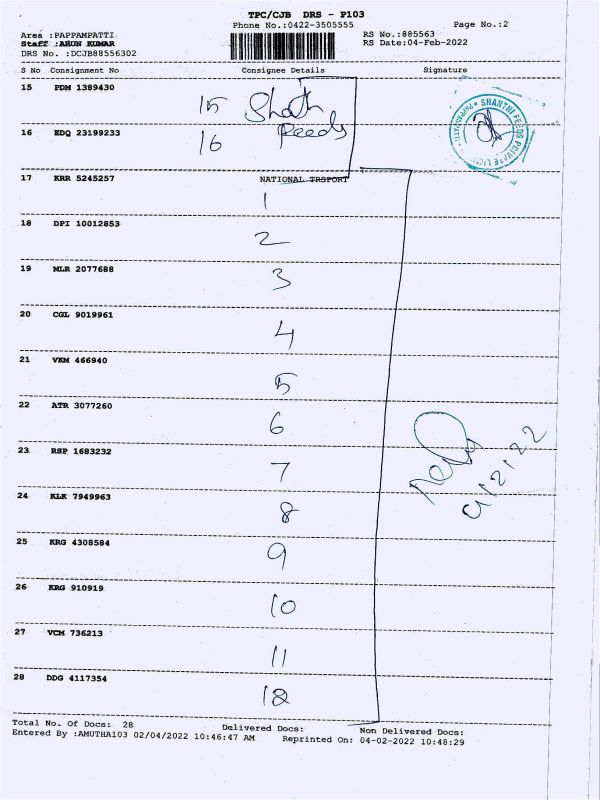 TPC/CJB DRS - P103
Phone No.:0422-3505555 Page No.:2
Area :PAPPAMPATTI RS No.:885563
Staff :ARUN KUMAR RS Date:04-Feb-2022
DRS No. :DCJB88556302
S No Consignment No Consignee Details Signature
15 PDM 1389430 15
16 EDQ 23199233 16 Feeds
SHANTHI FEEDS PRIVATE PAPPAMPATTI
17 KRR 5245257 NATIONAL TRSPORT
1
18 DPI 10012853
2
19 MLR 2077688
3
20 CGL 9019961
4
21 VKM 466940
5
22 ATR 3077260
6
23 RSP 1683232
7
24 KLK 7949963
8
25 KRG 4308584
9
26 KRG 910919
10
27 VCM 736213
11
28 DDG 4117354
12
Total No. Of Docs: 28 Delivered Docs: Non Delivered Docs:
Entered By :AMUTHA103 02/04/2022 10:46:47 AM Reprinted On: 04-02-2022 10:48:29